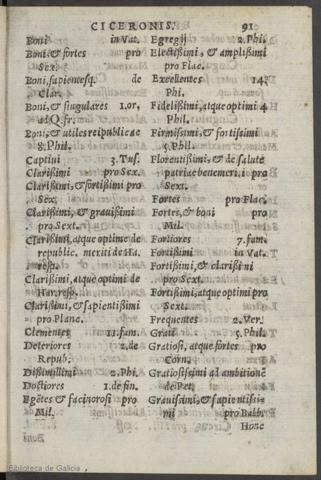 CICERONIS. 91
Boni in Vat.
Boni & fortes pro
Sex.
Boni, sapientesq. de
Clar.
Boni, & singulares 1.or,
ad Q. fr.
Boni, & utiles reipublicae
8. Phil.
Captivi 3. Tus.
Clarissimi pro Sex.
Clarissimi, & fortissimi pro
Sex.
Clarissimi, & gravissimi
pro Sext.
Clarissimi, atque optime de
republic. meriti de Ha.
resp.
Clarissimi, atque optimi de
Har. resp.
Clarissimi, & sapientissimi
pro Planc.
Clementes 11. fam.
Deteriores 2. de
Repub.
Dissimillimi 2. Phi.
Doctiores 1. de fin.
Egētes & facinorosi pro
Mil.
Egregij 2. Phi.
Electissimi, & amplissimi
pro Flac.
Excellentes 14.
Phi.
Fidelissimi, atque optimi 4
Phil.
Firmissimi, & fortissimi
5. Phil.
Florentissimi, & de salute
patriae benemeriti pro
Sext.
Fortes pro Flac.
Fortes, & boni pro
Mil.
Fortiores 7. fam.
Fortissimi in Vat.
Fortissimi, & clarissimi
pro Sext.
Fortissimi, atque optimi pro
Sext.
Frequentes 2. Ver.
Grati 5. Phil.
Gratiosi, atque fortes pro
Corn.
Gratiosissimi ad ambitionē
de Pet.
Gravissimi, & sapientissi-
mi pro Balb.
Hone
Biblioteca de Galicia